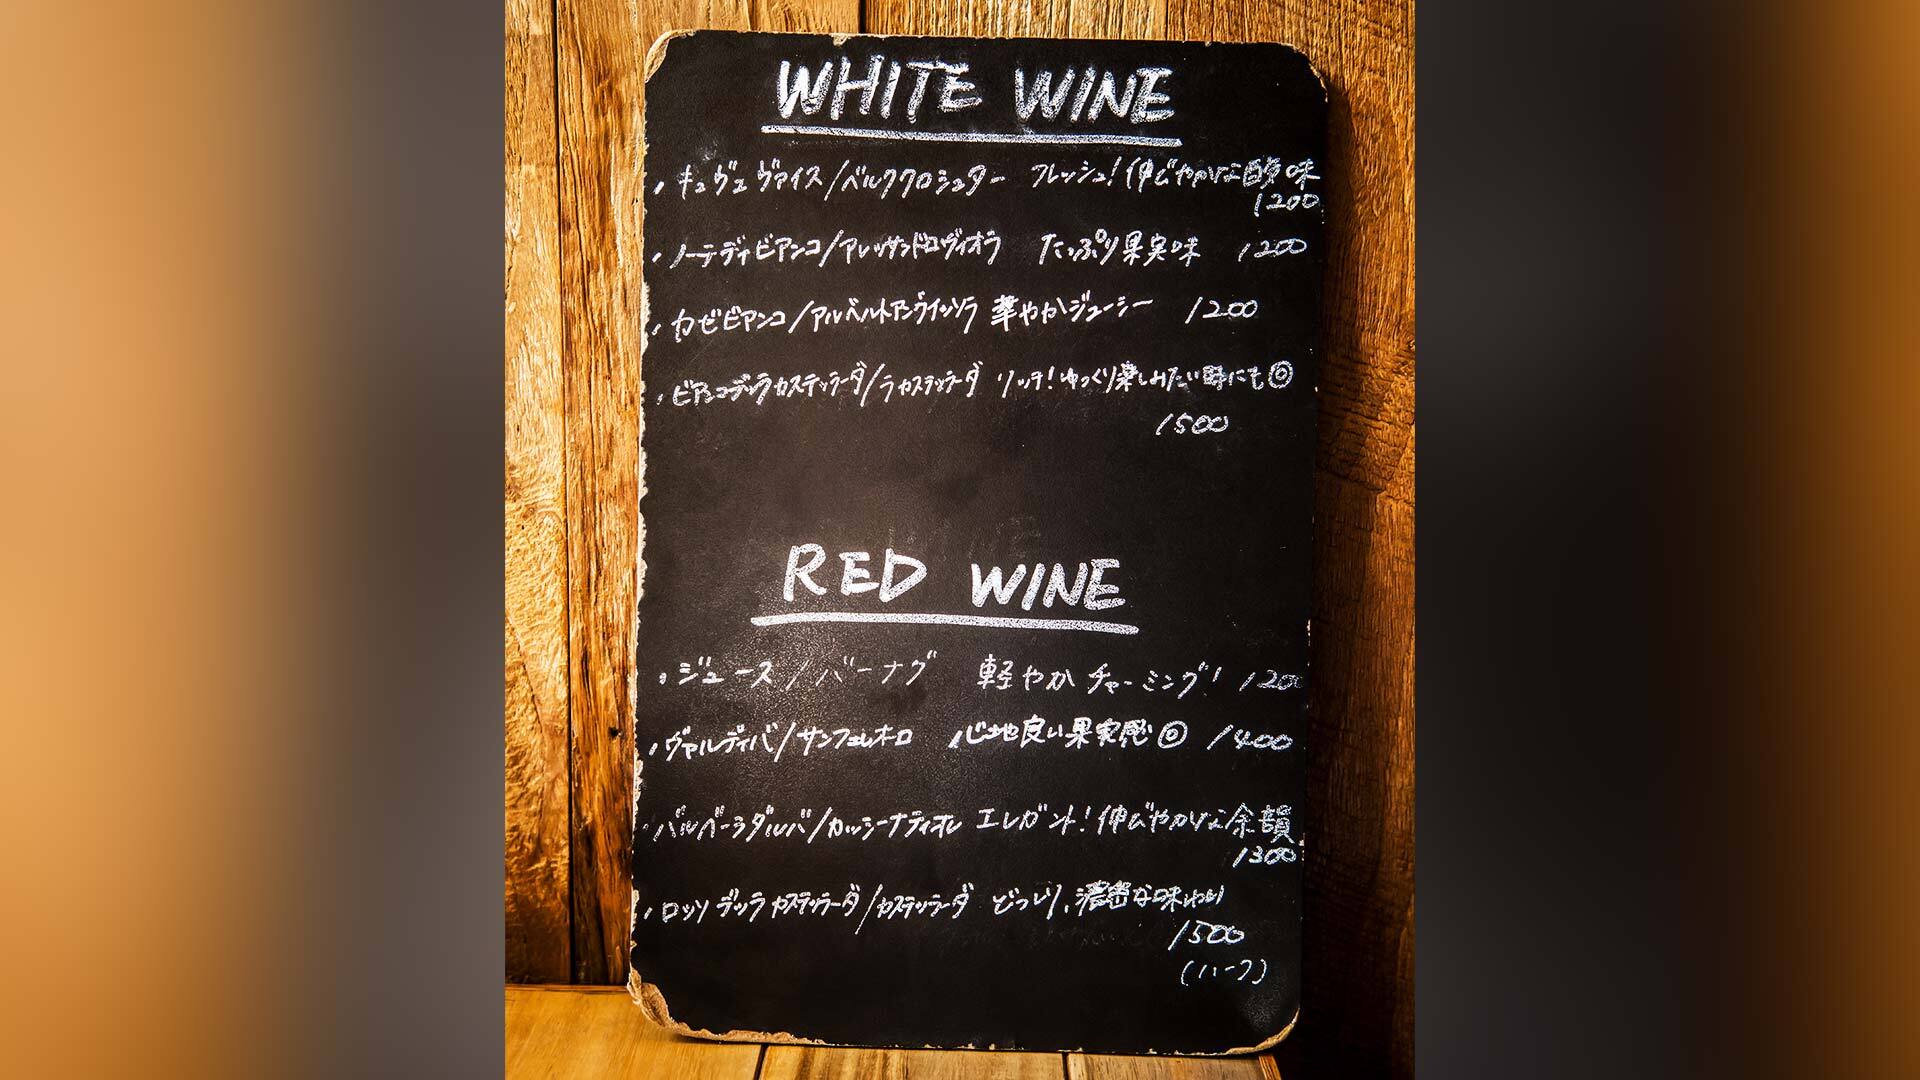 WHITE WINE
・キュヴェ ヴァイス/ベルクククロシュター フレッシュ!伸びやかな酸味
1200
・ノーテディビアンコ/アレッサンドロヴィオラ たっぷり果実味 1200
・カゼビアンコ/アルベルトアングイッソラ 華やかジューシー 1200
・ビアンコデッラカステッラーダ/ラカステッラーダ リッチ!ゆっくり楽しみたい時にも◎
1500
RED WINE
・ジュース/バーナグ 軽やかチャーミング! 1200
・ヴァルディバ/サンフェレオーロ 心地良い果実感◎ 1400
・バルベーラダルバ/カッシーナディオレ エレガント!伸びやかな余韻
1300
・ロッソ デッラ カステッラーダ/カステッラーダ どっしり、濃密な味わい
1500
(ハーフ)